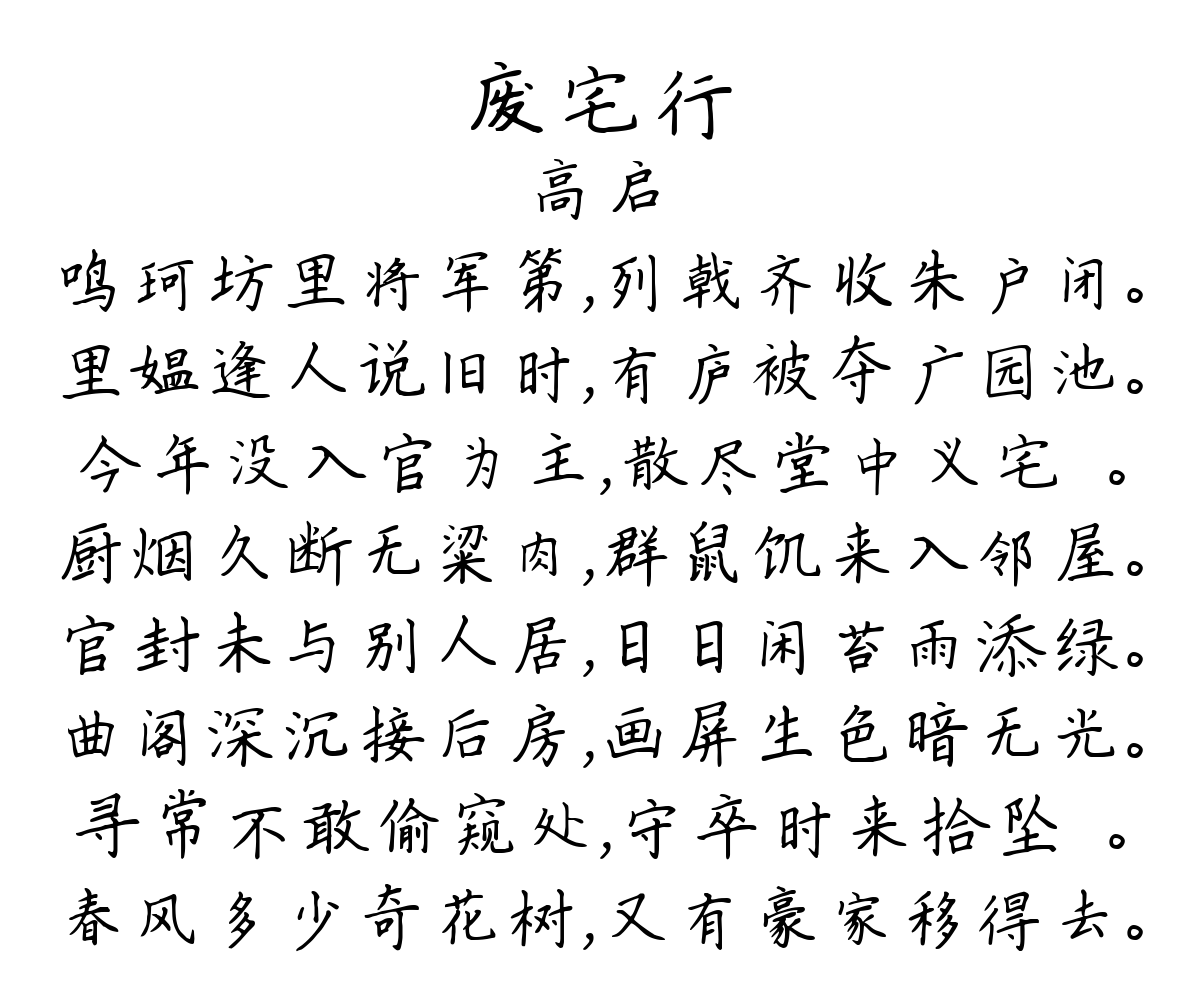 废宅行
高启
鸣珂坊里将军第,列戟齐收朱户闭。
里媪逢人说旧时,有庐被夺广园池。
今年没入官为主,散尽堂中义宅 。
厨烟久断无粱肉,群鼠饥来入邻屋。
官封未与别人居,日日闲苔雨添绿。
曲阁深沉接后房,画屏生色暗无光。
寻常不敢偷窥处,守卒时来拾坠 。
春风多少奇花树,又有豪家移得去。